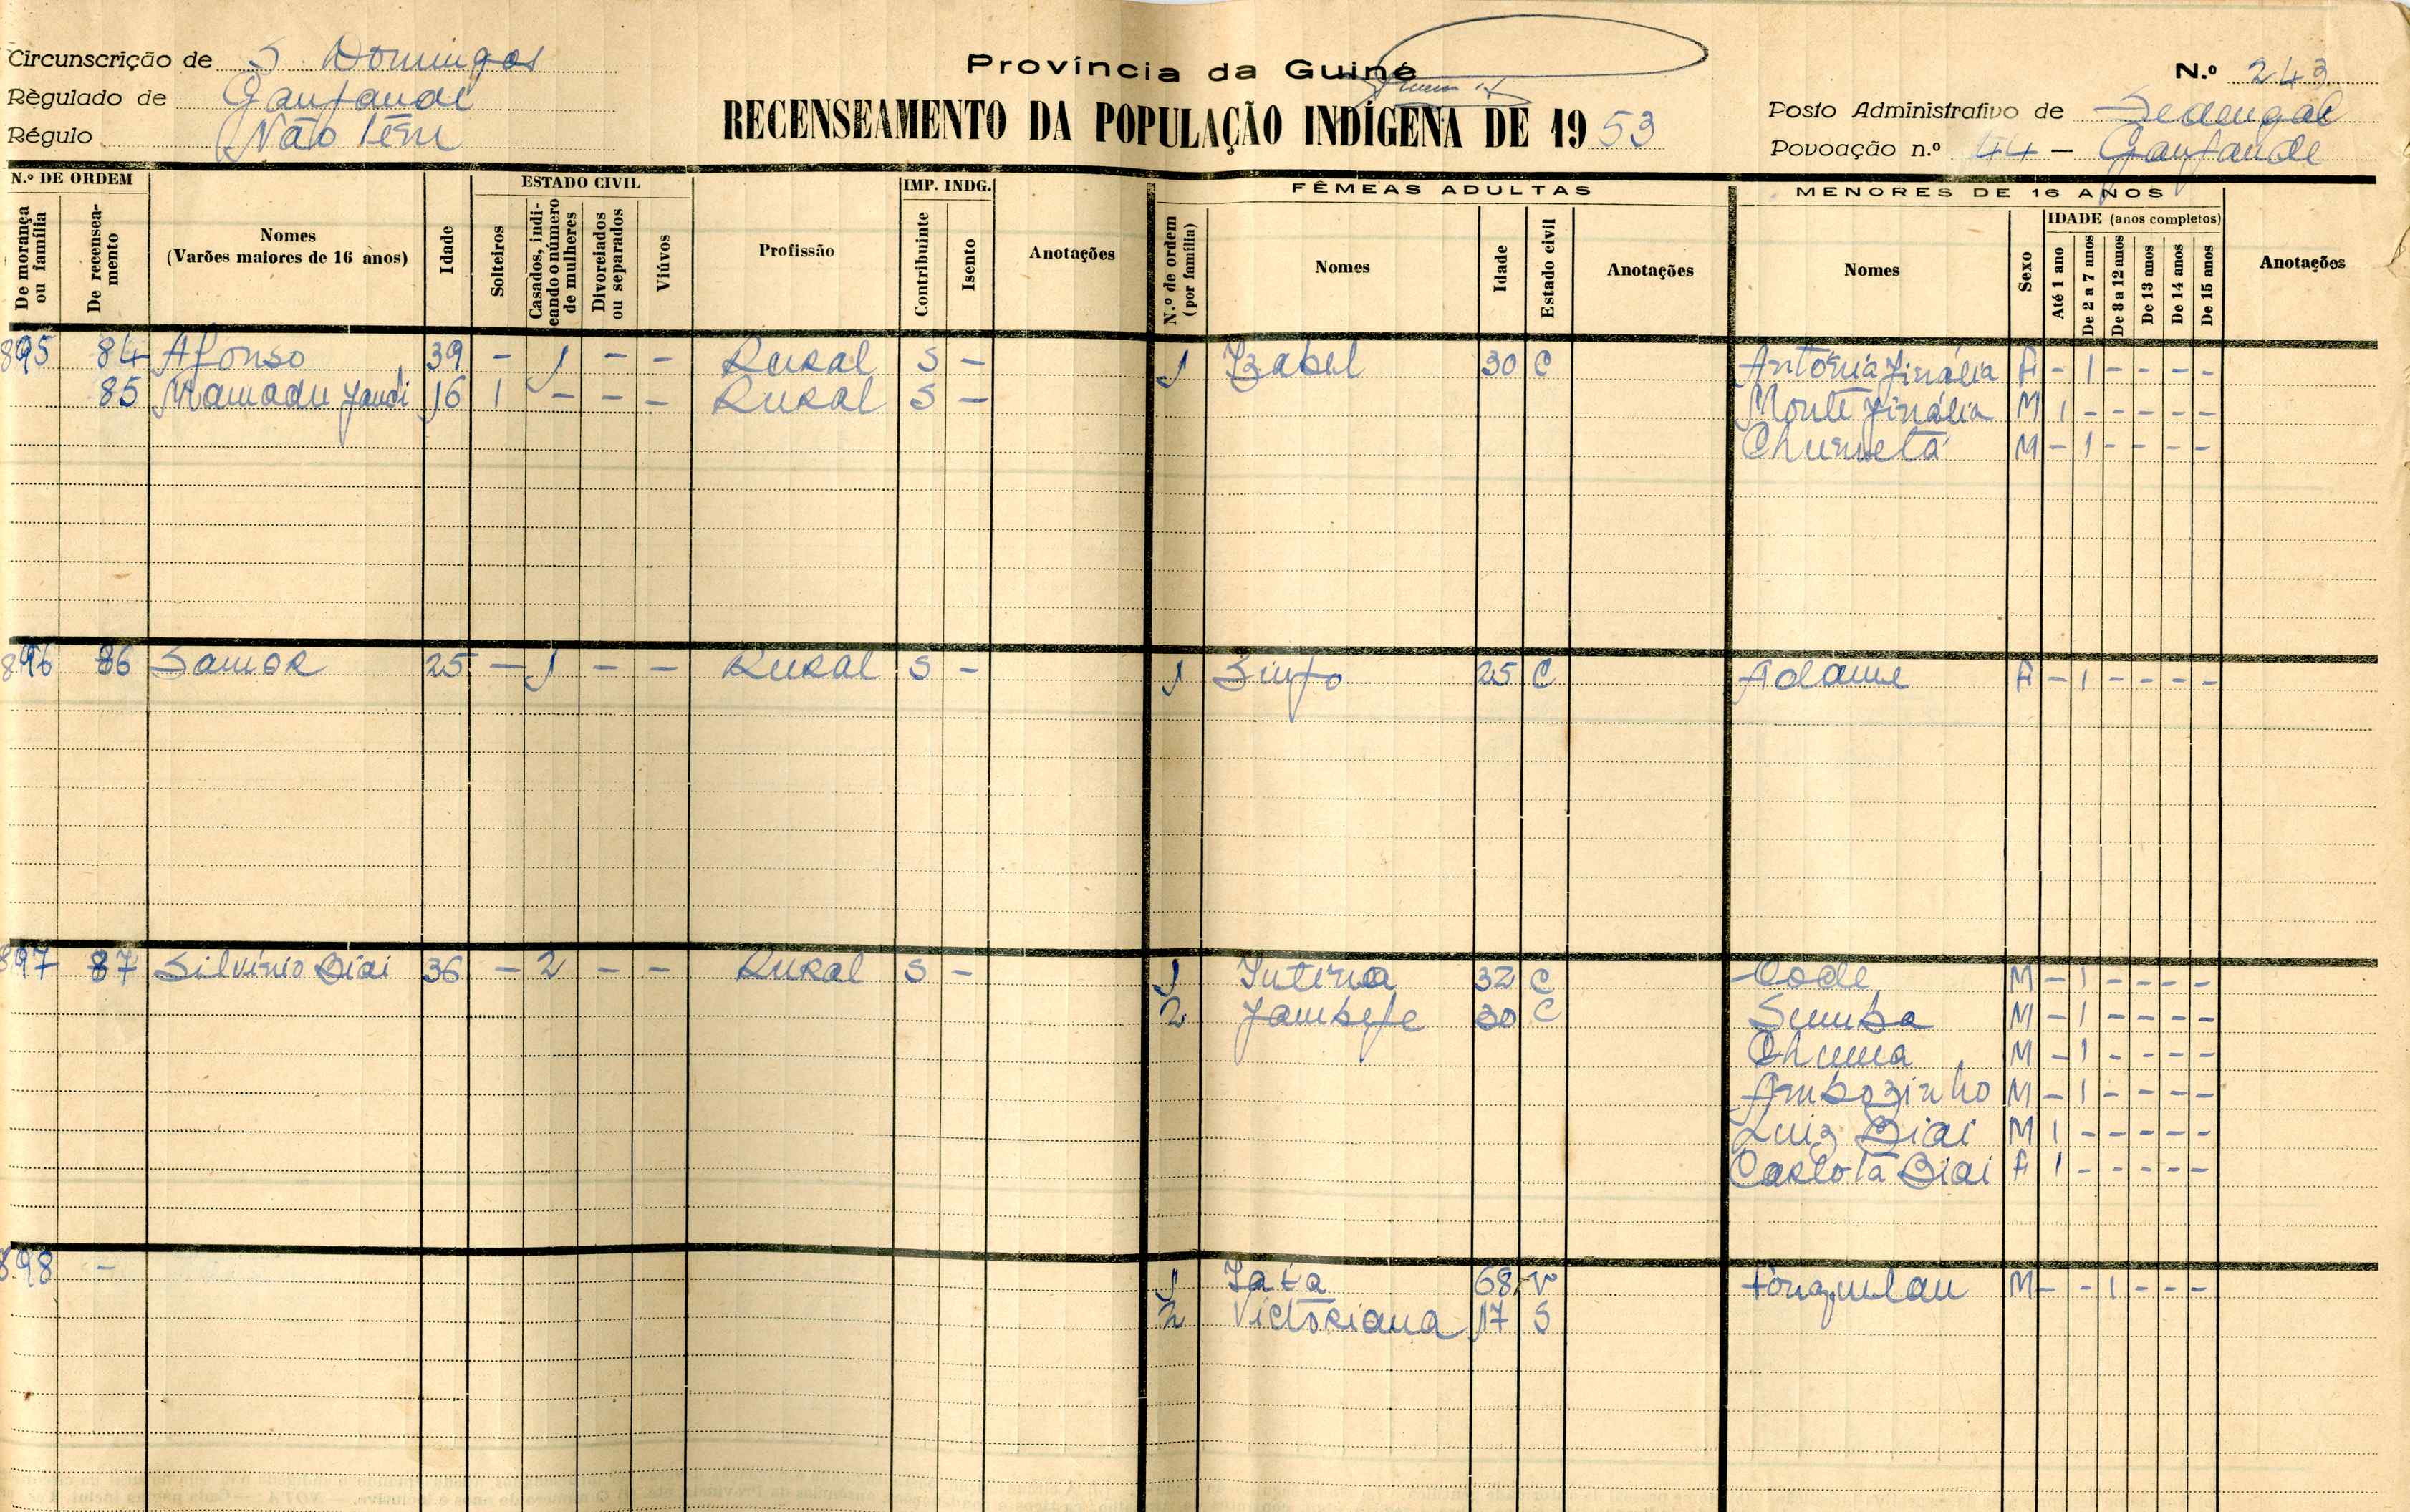 Circunscrição de S. Domingos
Règulado de Ganfande
Régulo Não têm
Província da Guiné
RECENSEAMENTO DA POPULAÇÃO INDÍGENA DE 1953
N.º 243
Posto Administrativo de Sedengal
Povoação n.º 44 - Ganfande
N.º DE ORDEM
De morança ou família
De recenseamento
Nomes
(Varões maiores de 16 anos)
Idade
ESTADO CIVIL
Solteiros
Casados, indicando o número de mulheres
Divorciados ou separados
Viúvos
Profissão
IMP. INDG.
Contribuinte
Isento
Anotações
FÊMEAS ADULTAS
N.º de ordem (por família)
Nomes
Idade
Estado civil
Anotações
MENORES DE 16 ANOS
Nomes
Sexo
IDADE (anos completos)
Até 1 ano
De 2 a 7 anos
De 8 a 12 anos
De 13 anos
De 14 anos
De 15 anos
Anotações
895 84 Afonso 39 - 1 - - Rural S - 1 Izabel 30 C Antónia Jinália F - 1 - - - -
85 Mamadu Jandi 16 1 - - - Rural S - Monte Jinália M 1 - - - - -
Chumetá M - 1 - - - -
896 86 Samor 25 - 1 - - Rural S - 1 Sinfo 25 C Adame F - 1 - - - -
897 87 Silvínio Biai 36 - 2 - - Rural S - 1 Interia 32 C Code M - 1 - - - -
2 Jambefe 30 C Sumba M - 1 - - - -
Chuma M - 1 - - - -
Ambozinho M - 1 - - - -
Luiz Biai M 1 - - - - -
Carlota Biai F 1 - - - - -
898 - 1 Tata 68 V M - - 1 - - -
2 Victoriana 17 S